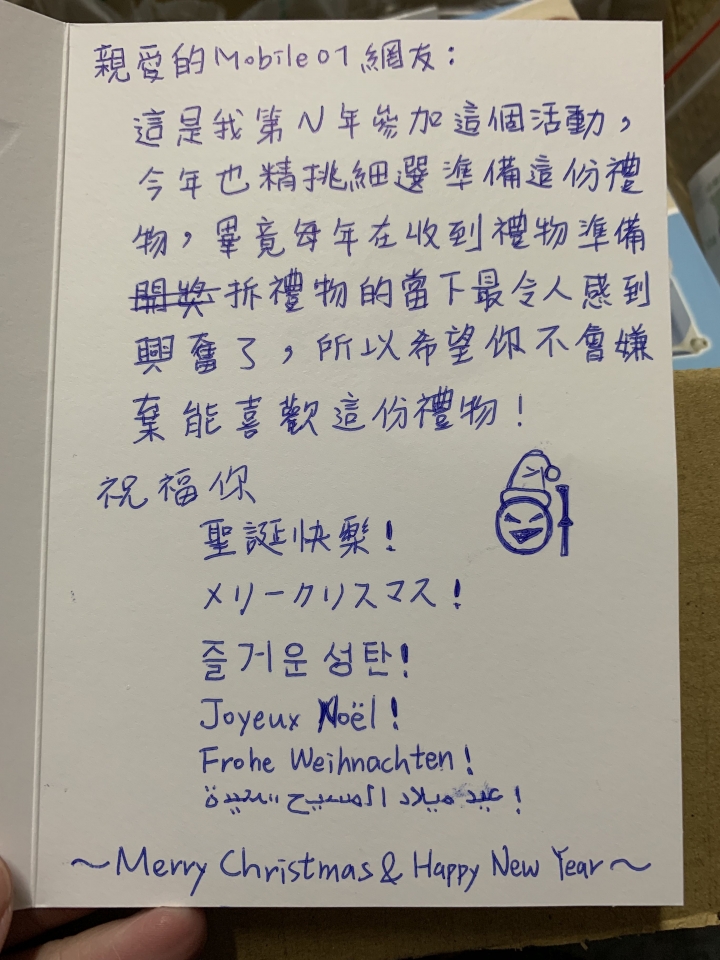 親愛的Mobile01網友：
這是我第N年參加這個活動，
今年也精挑細選準備這份禮
物，畢竟每年在收到禮物準備
開獎拆禮物的當下最令人感到
興奮了，所以希望你不會嫌
棄能喜歡這份禮物！
祝福你
聖誕快樂！
メリークリスマス！
즐거운 성탄!
Joyeux Noël!
Frohe Weihnachten!
عيد ميلاد المسيح !
～Merry Christmas & Happy New Year～